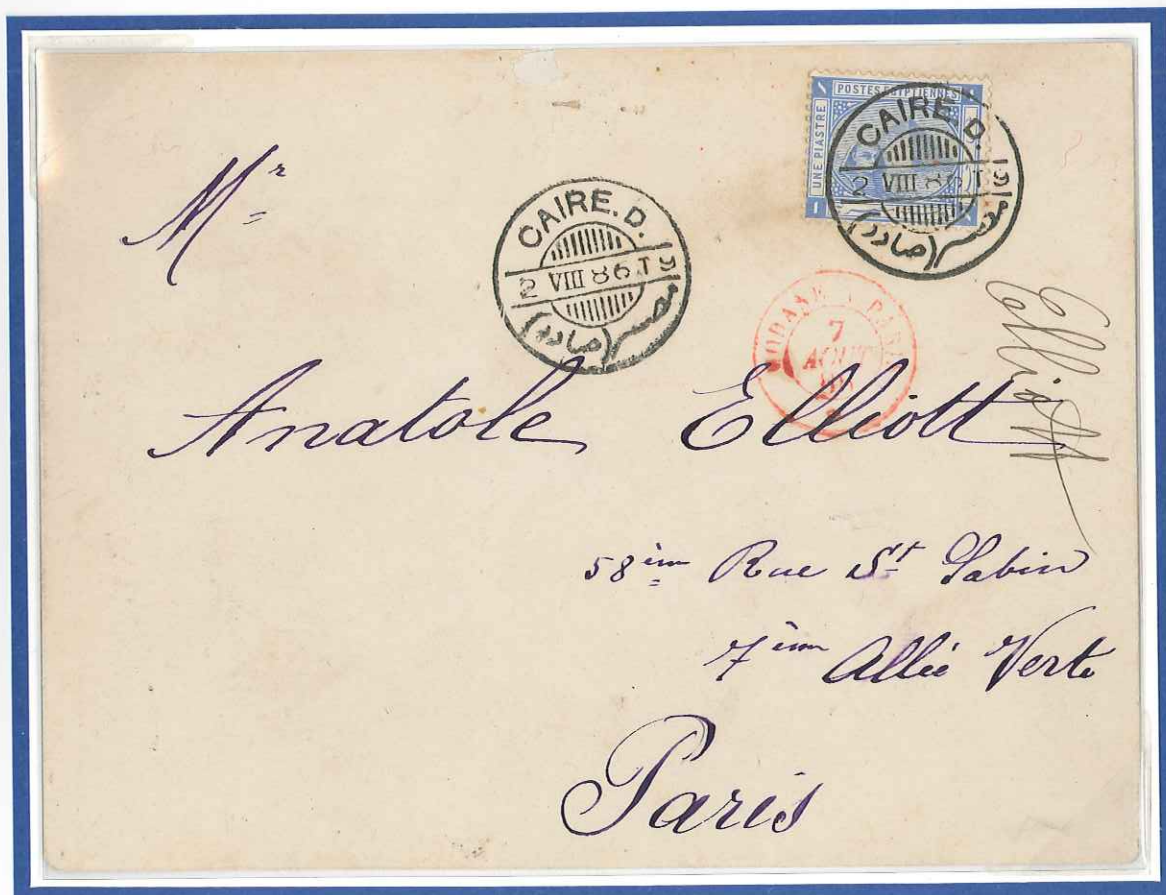 POSTES EGYPTIENNES
UNE PIASTRE
1
CAIRE. D.
2 VIII 86 T 9
مصر (صادر)
CAIRE. D.
2 VIII 86 T 9
مصر (صادر)
MODANE A PARIS
7
AOUT
86
Mr
Elliott
Anatole Elliott
58 èm Rue St Sabin
7 èm Allée Verte
Paris